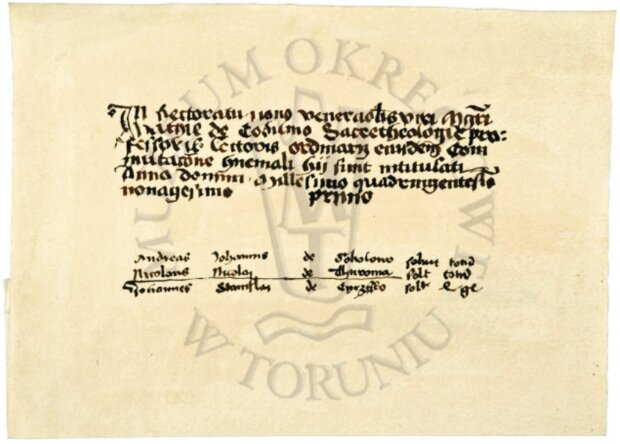 In Rectoratu nono venerabilis viri Mgri
Mathie de Cobilino Sacretheologie pro-
fessoris lectoris ordinarij eiusdem Com
mutacione hyemali hij sunt intitulati
Anno domini Millesimo quadringentesimo
nonagesimo primo
Andreas Johannis de Soboľowo solvit totum
Nicolaus Nicolai de Thoronia solt totum
Johannes Stanislai de solt ge
MUZEUM OKRĘGOWE
W TORUNIU